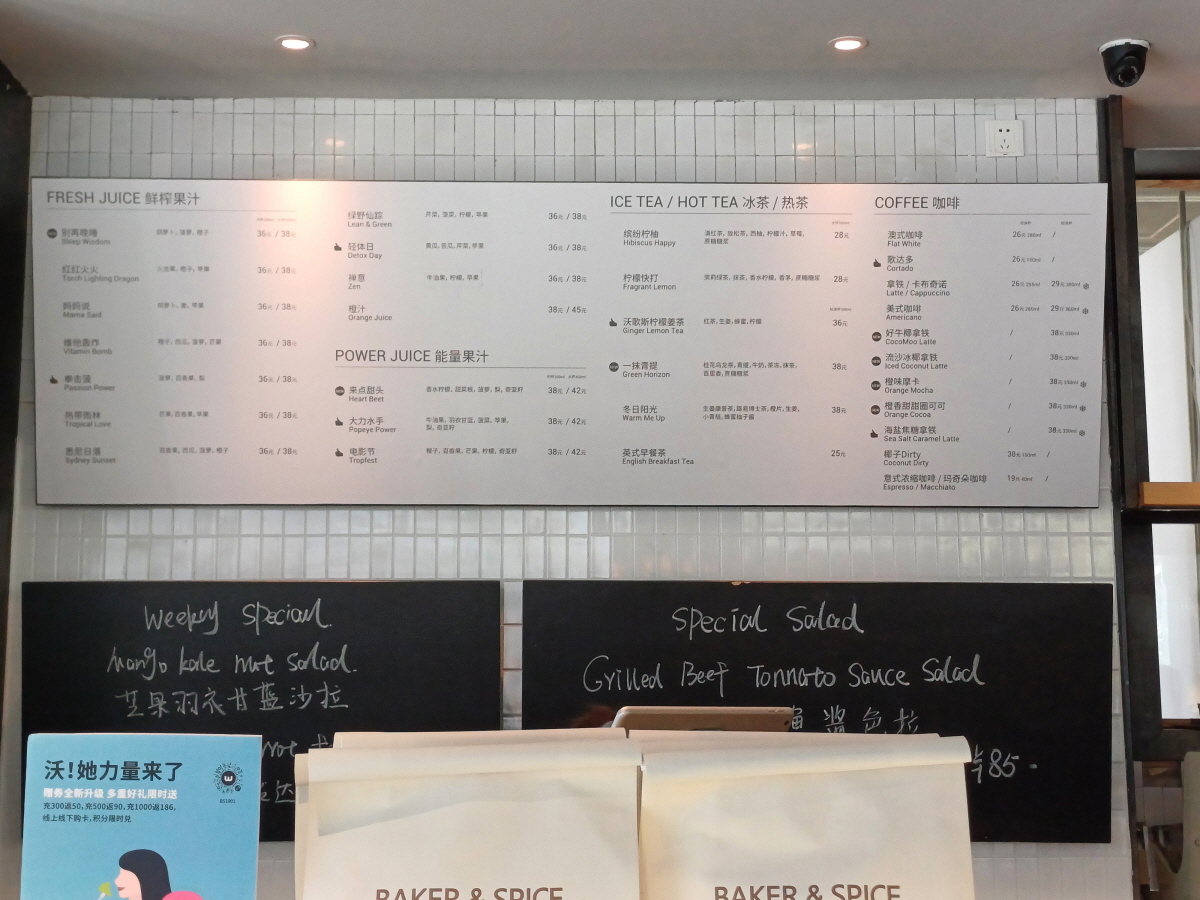 FRESH JUICE 鲜榨果汁
别再瞌睡
Sleep Wisdom
胡萝卜, 菠萝, 橙子
36元 / 38元
红红火火
Torch Lighting Dragon
火龙果, 橙子, 苹果
36元 / 38元
妈妈说
Mama Said
胡萝卜, 姜, 苹果
36元 / 38元
维他轰炸
Vitamin Bomb
橙子, 西瓜, 菠萝, 芒果
36元 / 38元
拳击蓝
Passion Power
菠萝, 百香果, 梨
36元 / 38元
热带雨林
Tropical Love
芒果, 百香果, 苹果
36元 / 38元
悉尼日落
Sydney Sunset
百香果, 西瓜, 菠萝, 橙子
36元 / 38元
绿野仙踪
Lean & Green
芹菜, 菠菜, 柠檬, 苹果
36元 / 38元
轻体日
Detox Day
黄瓜, 苦瓜, 芹菜, 苹果
36元 / 38元
禅意
Zen
牛油果, 柠檬, 苹果
36元 / 38元
橙汁
Orange Juice
38元 / 45元
POWER JUICE 能量果汁
来点甜头
Heart Beet
香水柠檬, 甜菜根, 菠萝, 梨, 奇亚籽
38元 / 42元
大力水手
Popeye Power
牛油果, 羽衣甘蓝, 菠菜, 苹果,
梨, 奇亚籽
38元 / 42元
电影节
Tropfest
橙子, 百香果, 芒果, 柠檬, 奇亚籽
38元 / 42元
ICE TEA / HOT TEA 冰茶 / 热茶
缤纷柠柚
Hibiscus Happy
滇红茶, 放松茶, 西柚, 柠檬汁, 草莓,
蔗糖糖浆
28元
柠檬快打
Fragrant Lemon
茉莉绿茶, 抹茶, 香水柠檬, 香茅, 蔗糖糖浆
28元
沃歌斯柠檬姜茶
Ginger Lemon Tea
红茶, 生姜, 蜂蜜, 柠檬
36元
一抹青提
Green Horizon
桂花乌龙茶, 青提, 牛奶, 茶冻, 抹茶,
百里香, 蔗糖糖浆
38元
冬日阳光
Warm Me Up
生姜康普茶, 路易博士茶, 橙片, 生姜,
小青桔, 蜂蜜柚子酱
38元
英式早餐茶
English Breakfast Tea
25元
COFFEE 咖啡
澳式咖啡
Flat White
26元 280ml /
歌达多
Cortado
26元 150ml /
拿铁 / 卡布奇诺
Latte / Cappuccino
26元 235ml 29元 380ml
美式咖啡
Americano
26元 280ml 29元 360ml
好牛椰拿铁
CocoMoo Latte
/ 38元 330ml
流沙冰椰拿铁
Iced Coconut Latte
/ 38元 330ml
橙味摩卡
Orange Mocha
/ 38元 330ml
橙香甜甜圈可可
Orange Cocoa
/ 38元 330ml
海盐焦糖拿铁
Sea Salt Caramel Latte
/ 38元 350ml
椰子Dirty
Coconut Dirty
38元 150ml /
意式浓缩咖啡 / 玛奇朵咖啡
Espresso / Macchiato
19元 60ml /
Weekly Special.
Mango kale nut salad.
芒果羽衣甘蓝沙拉
Special Salad
Grilled Beef Tonnato Sauce Salad
酱色拉
85.
沃!她力量来了
赠券全新升级 多重好礼限时送
充300返50, 充500返90, 充1000返186,
线上线下购卡, 积分限时兑
BS1001
BAKER & SPICE
BAKER & SPICE